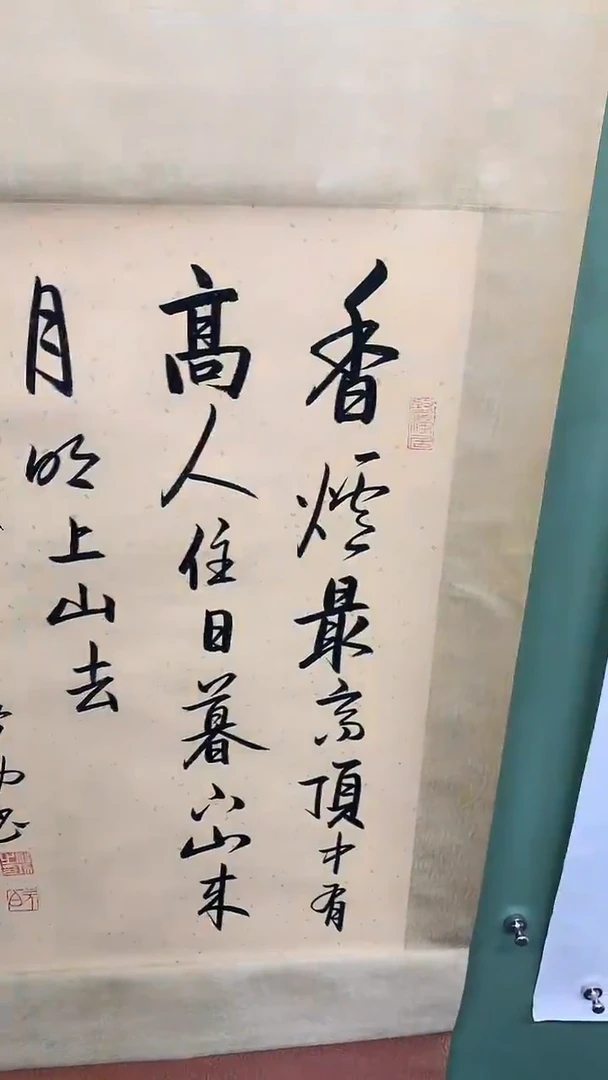 香爐最高頂中有
高人住日暮下山来
月明上山去